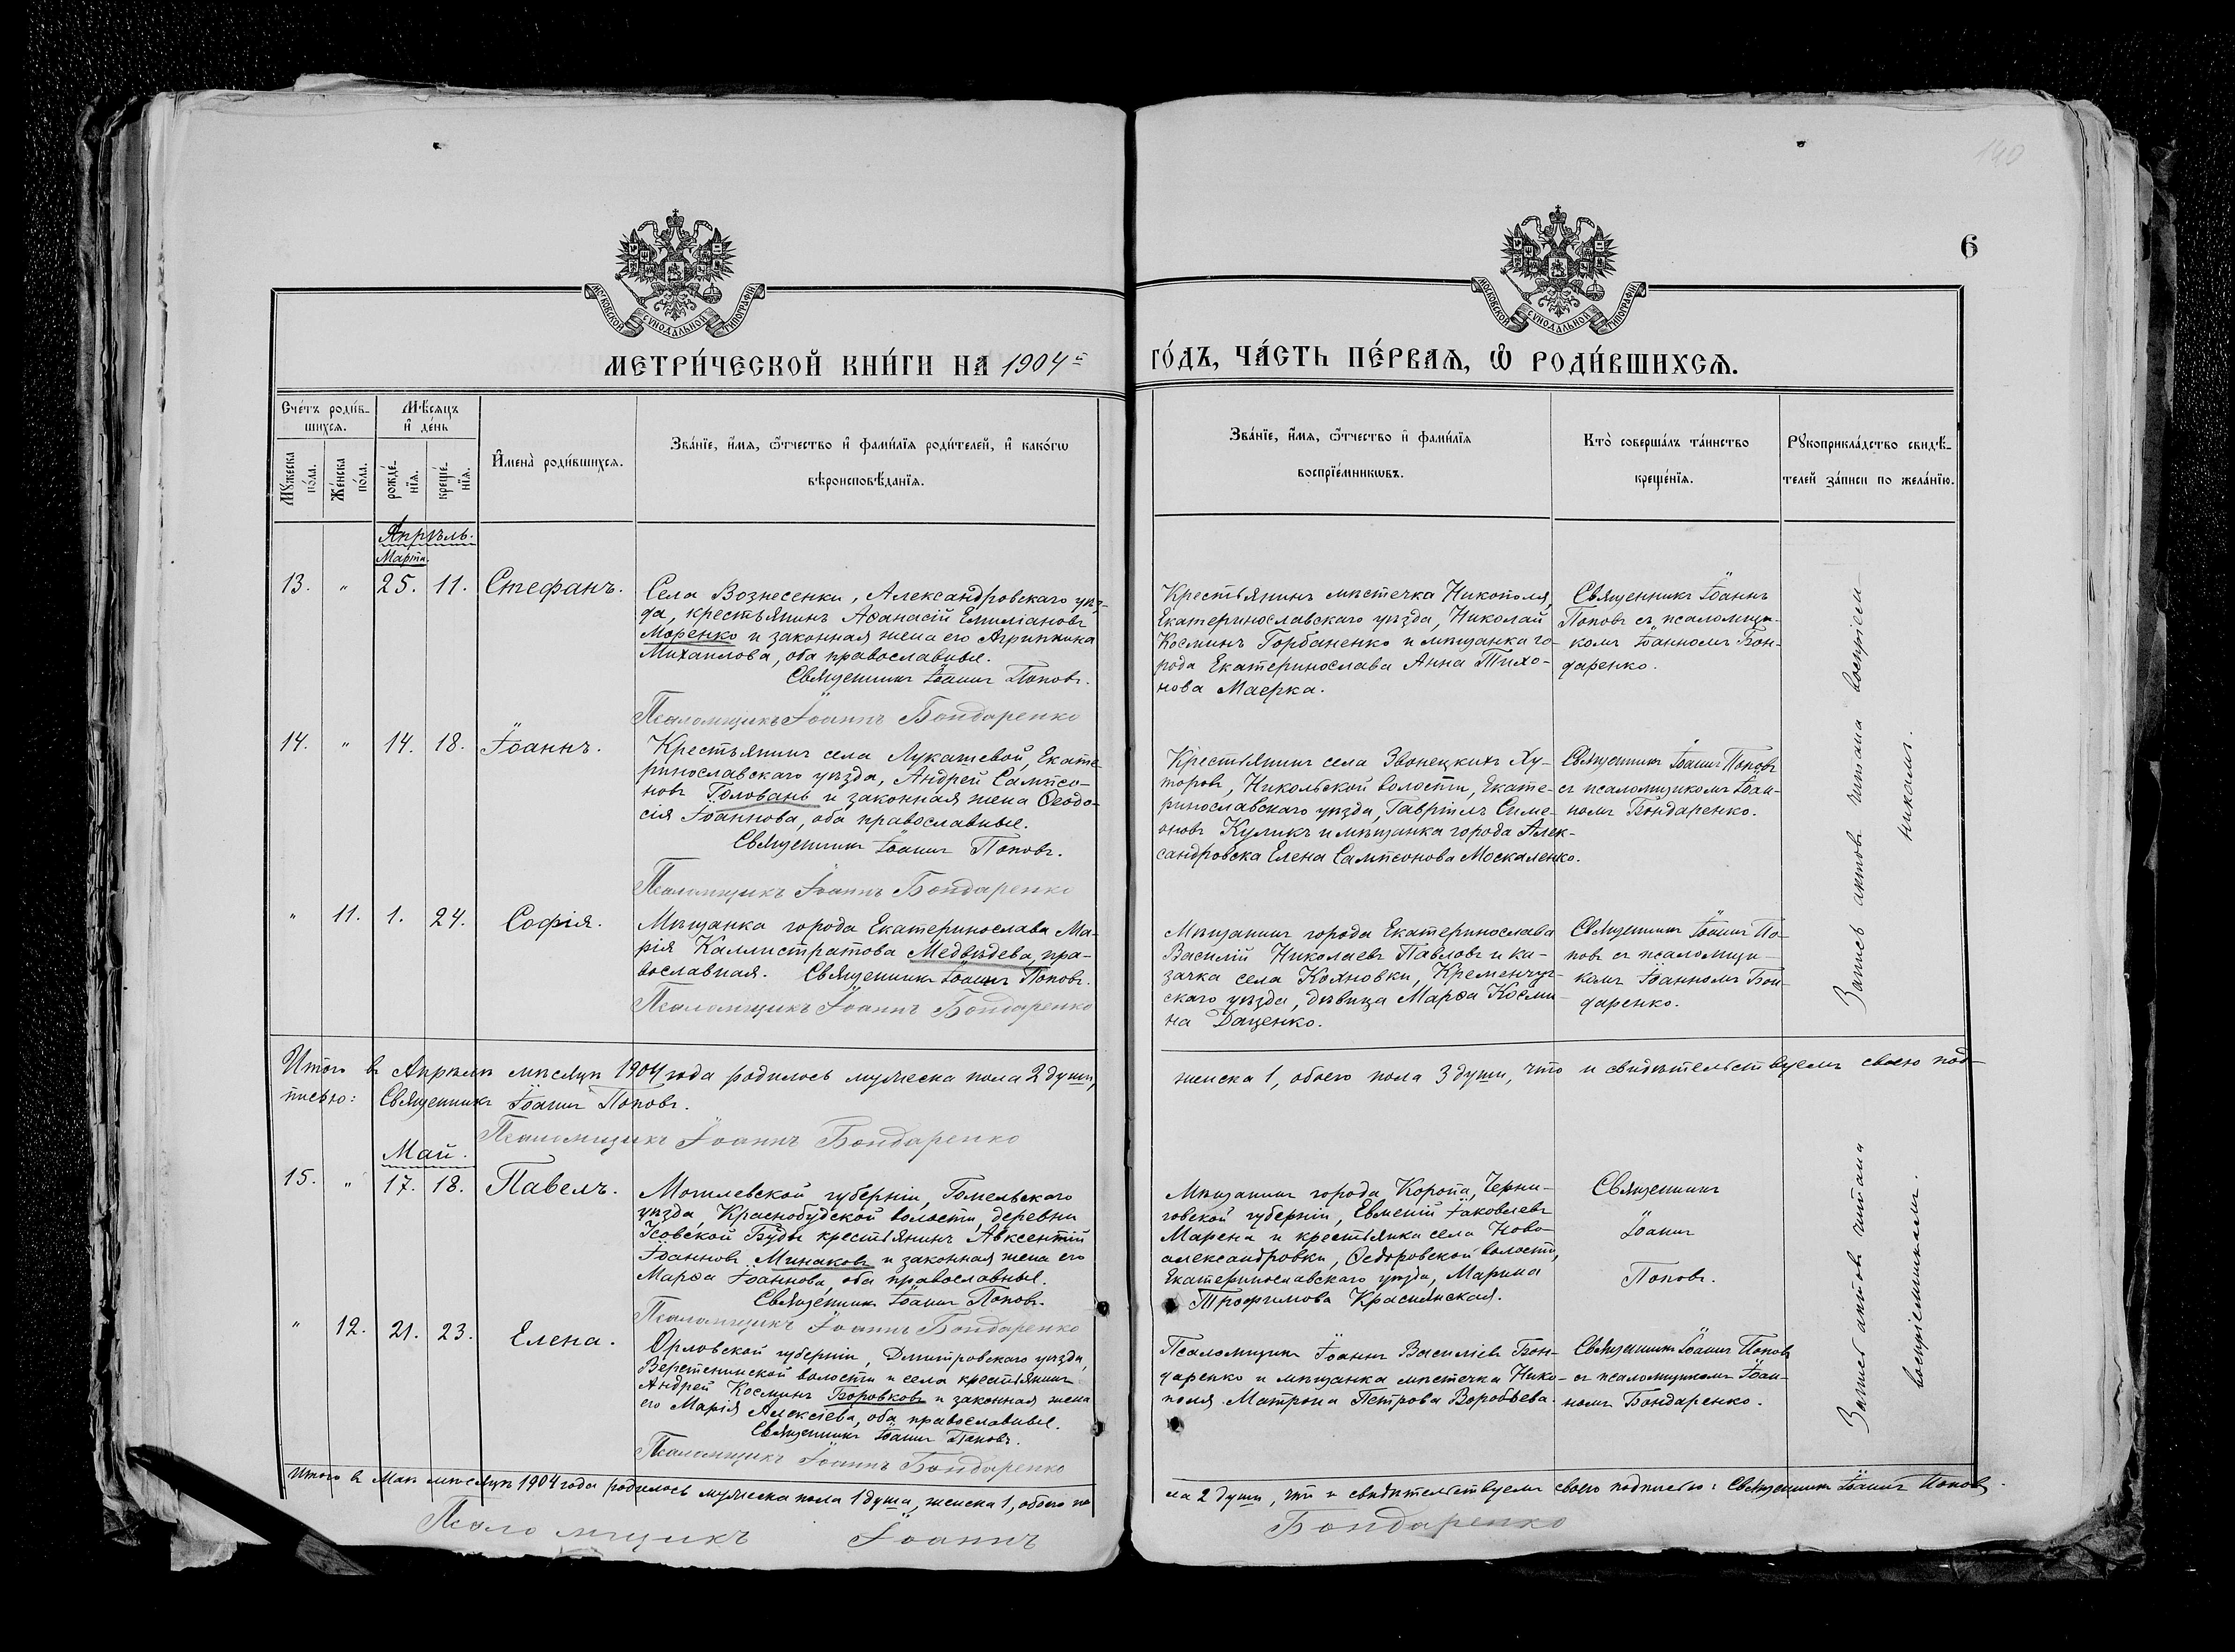 140
6
МОСКОВСКОЙ СѴНОДАЛЬНОЙ ТИПОГРАФІИ
МОСКОВСКОЙ СѴНОДАЛЬНОЙ ТИПОГРАФІИ
МЕТРИ́ЧЕСКОЙ КНИ́ГИ НА 1904й
ГО́ДЪ, ЧА́СТЬ ПЕ́РВАѦ, Ѡ҆ РОДИ́ВШИХСѦ.
Сче́тъ роди́в-
шихся.
Му́жеска по́ла.
Же́нска по́ла.
Мѣ́сяцъ и҆ де́нь
рожде́-нїя.
креще́-нїя.
И҆мена̀ роди́вшихся.
Зва́нїе, и҆́мя, ѻ҆́тчество и҆ фами́лїя роди́телей, и҆ како́гѡ
вѣроисповѣ́данїя.
Зва́нїе, и҆́мя, ѻ҆́тчество и҆ фами́лїя
воспрїе́мникѡвъ.
Кто̀ соверша́лъ та́инство
креще́нїя.
Рꙋкоприкла́дство свидѣ́-
телей за́писи по жела́нїю.
Апрѣль.
Марта.
13. " 25. 11. Стефанъ.
Села Вознесенки, Александровскаго уѣз-
да, крестьянинъ Аѳанасій Емиліановъ
Моренко и законная жена его Агриппина
Михаилова, оба православные.
Священникъ Іоаннъ Поповъ.
Псаломщикъ Іоаннъ Бондаренко
Крестьянинъ мѣстечка Никополя,
Екатеринославскаго уѣзда, Николай
Косминъ Горбаненко и мѣщанка го-
рода Екатеринослава Анна Тихо-
нова Маерка.
Священникъ Іоаннъ
Поповъ съ псаломщи-
комъ Іоанномъ Бон-
даренко.
14. " 14. 18. Іоаннъ.
Крестьянинъ села Лукашевой, Екате-
ринославскаго уѣзда, Андрей Сампсо-
новъ Головань и законная жена Ѳеодо-
сія Іоаннова, оба православные.
Священникъ Іоаннъ Поповъ.
Псаломщикъ Іоаннъ Бондаренко
Крестьянинъ села Звонецкихъ Ху-
торовъ, Никольской волости, Екате-
ринославскаго уѣзда, Гавріилъ Симе-
оновъ Куликъ и мѣщанка города Алек-
сандровска Елена Сампсонова Москаленко.
Священникъ Іоаннъ Поповъ
съ псаломщикомъ Іоан-
номъ Бондаренко.
" 11. 1. 24. Софія.
Мѣщанка города Екатеринослава Ма-
рія Каллистратова Медвѣдева, пра-
вославная. Священникъ Іоаннъ Поповъ.
Псаломщикъ Іоаннъ Бондаренко
Мѣщанинъ города Екатеринослава
Василій Николаевъ Павловъ и ка-
зачка села Кохновки, Кременчуг-
скаго уѣзда, дѣвица Марѳа Косми-
на Даценко.
Священникъ Іоаннъ По-
повъ съ псаломщи-
комъ Іоанномъ Бон-
даренко.
Запись актовъ читана воспріем-
никамъ.
Итого въ Апрѣлѣ мѣсяцѣ 1904 года родилось мужеска пола 2 души,
женска 1, обоего пола 3 души, что и свидѣтельствуемъ своею под-
писью: Священникъ Іоаннъ Поповъ.
Псаломщикъ Іоаннъ Бондаренко
Май.
15. " 17. 18. Павелъ.
Могилевской губерніи, Гомельскаго
уѣзда, Краснобудской волости, деревни
Усовской Буды крестьянинъ Авксентій
Іоанновъ Минаковъ и законная жена его
Марѳа Іоаннова, оба православные.
Священникъ Іоаннъ Поповъ.
Псаломщикъ Іоаннъ Бондаренко
Мѣщанинъ города Коропа, Черни-
говской губерніи, Евмений Іаковлевъ
Марена и крестьянка села Ново-
александровки, Ѳедоровской волости,
Екатеринославскаго уѣзда, Марина
Трофимова Краснянская.
Священникъ
Іоаннъ
Поповъ.
" 12. 21. 23. Елена.
Орловской губерніи, Дмитровскаго уѣзда,
Веретенинской волости и села крестьянинъ
Андрей Косминъ Боровковъ и законная жена
его Марія Алексіева, оба православные.
Священникъ Іоаннъ Поповъ.
Псаломщикъ Іоаннъ Бондаренко
Псаломщикъ Іоаннъ Василіевъ Бон-
даренко и мѣщанка мѣстечка Нико-
поля Матрона Петрова Воробьева.
Священникъ Іоаннъ Поповъ
съ псаломщикомъ Іоан-
номъ Бондаренко.
Запись актовъ читана
воспріемникамъ.
Итого въ Маѣ мѣсяцѣ 1904 года родилось мужеска пола 1 душа, женска 1, обоего по
ла 2 души, что и свидѣтельствуемъ своею подписью: Священникъ Іоаннъ Поповъ.
Псаломщикъ Іоаннъ Бондаренко